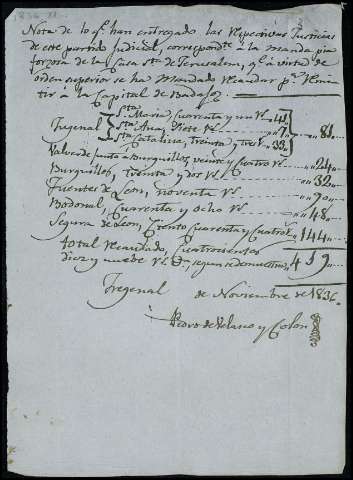 1836 XI
Nota de lo q.e han entregado las respectivas Justicias
de este partido judicial, correspond.te a la manda pia
forzosa de la Casa S.ta de Jerusalem, q.e à virtud de
orden superior se ha Mandado Recaudar p.a Remi-
tir à la Capital de Badajoz.
Fregenal S.ta Maria, Cuarenta y un r.s 41
S.ta Ana, Siete r.s 7 81
S.ta Catalina, treinta y tres r.s 33
Valverde junto a Burguillos, veinte y cuatro r.s 24
Burguillos, treinta y dos r.s 32
Fuentes de Leon, noventa r.s 90
Bodonal, Cuarenta y ocho r.s 48
Segura de Leon, Ciento Cuarenta y Cuatro r.s 144
total Recaudado, Cuatrocientos
diez y nueve r.s segun se demuestra 419
Fregenal de Noviembre de 1836
Pedro de Velasco y Colon